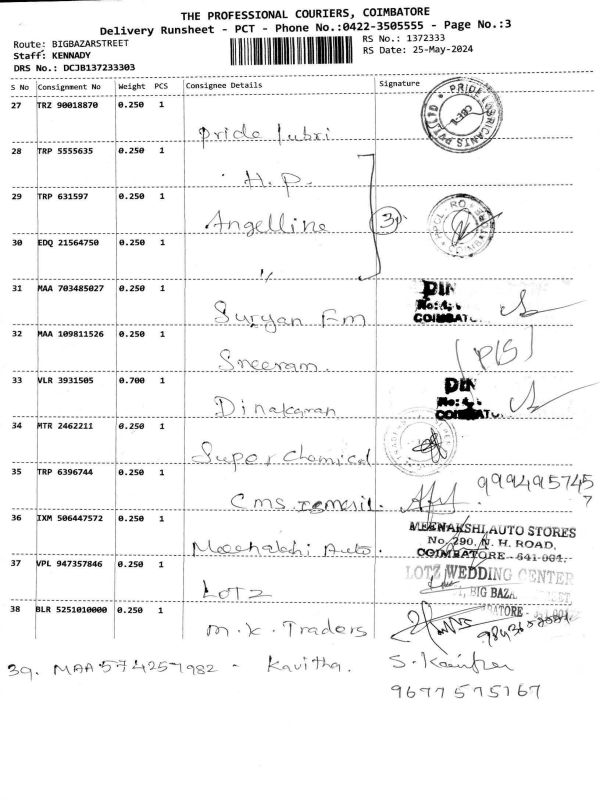 THE PROFESSIONAL COURIERS, COIMBATORE
Delivery Runsheet - PCT - Phone No.:0422-3505555 - Page No.:3
Route: BIGBAZARSTREET
RS No.: 1372333
Staff: KENNADY
RS Date: 25-May-2024
DRS No.: DCJB137233303
S No Consignment No Weight PCS Consignee Details Signature
27 TRZ 90018870 0.250 1
Pride Lubri
PRIDE LUBRICANTS PVT LTD
28 TRP 5555635 0.250 1
H.P.
29 TRP 631597 0.250 1
Angelline
3
30 EDQ 21564750 0.250 1
"
31 MAA 703485027 0.250 1
Suryan Fm
DIN
No:4
COIMBATO
32 MAA 109811526 0.250 1
Sreeram
(P15)
33 VLR 3931505 0.700 1
Dinakaran
DIN
No:
COIMBATO
34 MTR 2462211 0.250 1
Super chemical
35 TRP 6396744 0.250 1
Cms
9994957457
36 IXM 506447572 0.250 1
Meenakshi Auto.
MEENAKSHI AUTO STORES
No. 290, N. H. ROAD,
COIMBATORE - 641 001.
37 VPL 947357846 0.250 1
LOTZ
LOTZ WEDDING CENTER
BIG BAZA STREET,
38 BLR 5251010000 0.250 1
M.K. Traders
39. MAA 574257982 - Kavitha.
9677575167